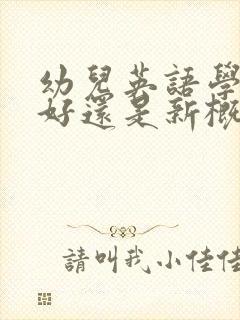 幼兒英語學
好還是新概
請叫我小佳佳